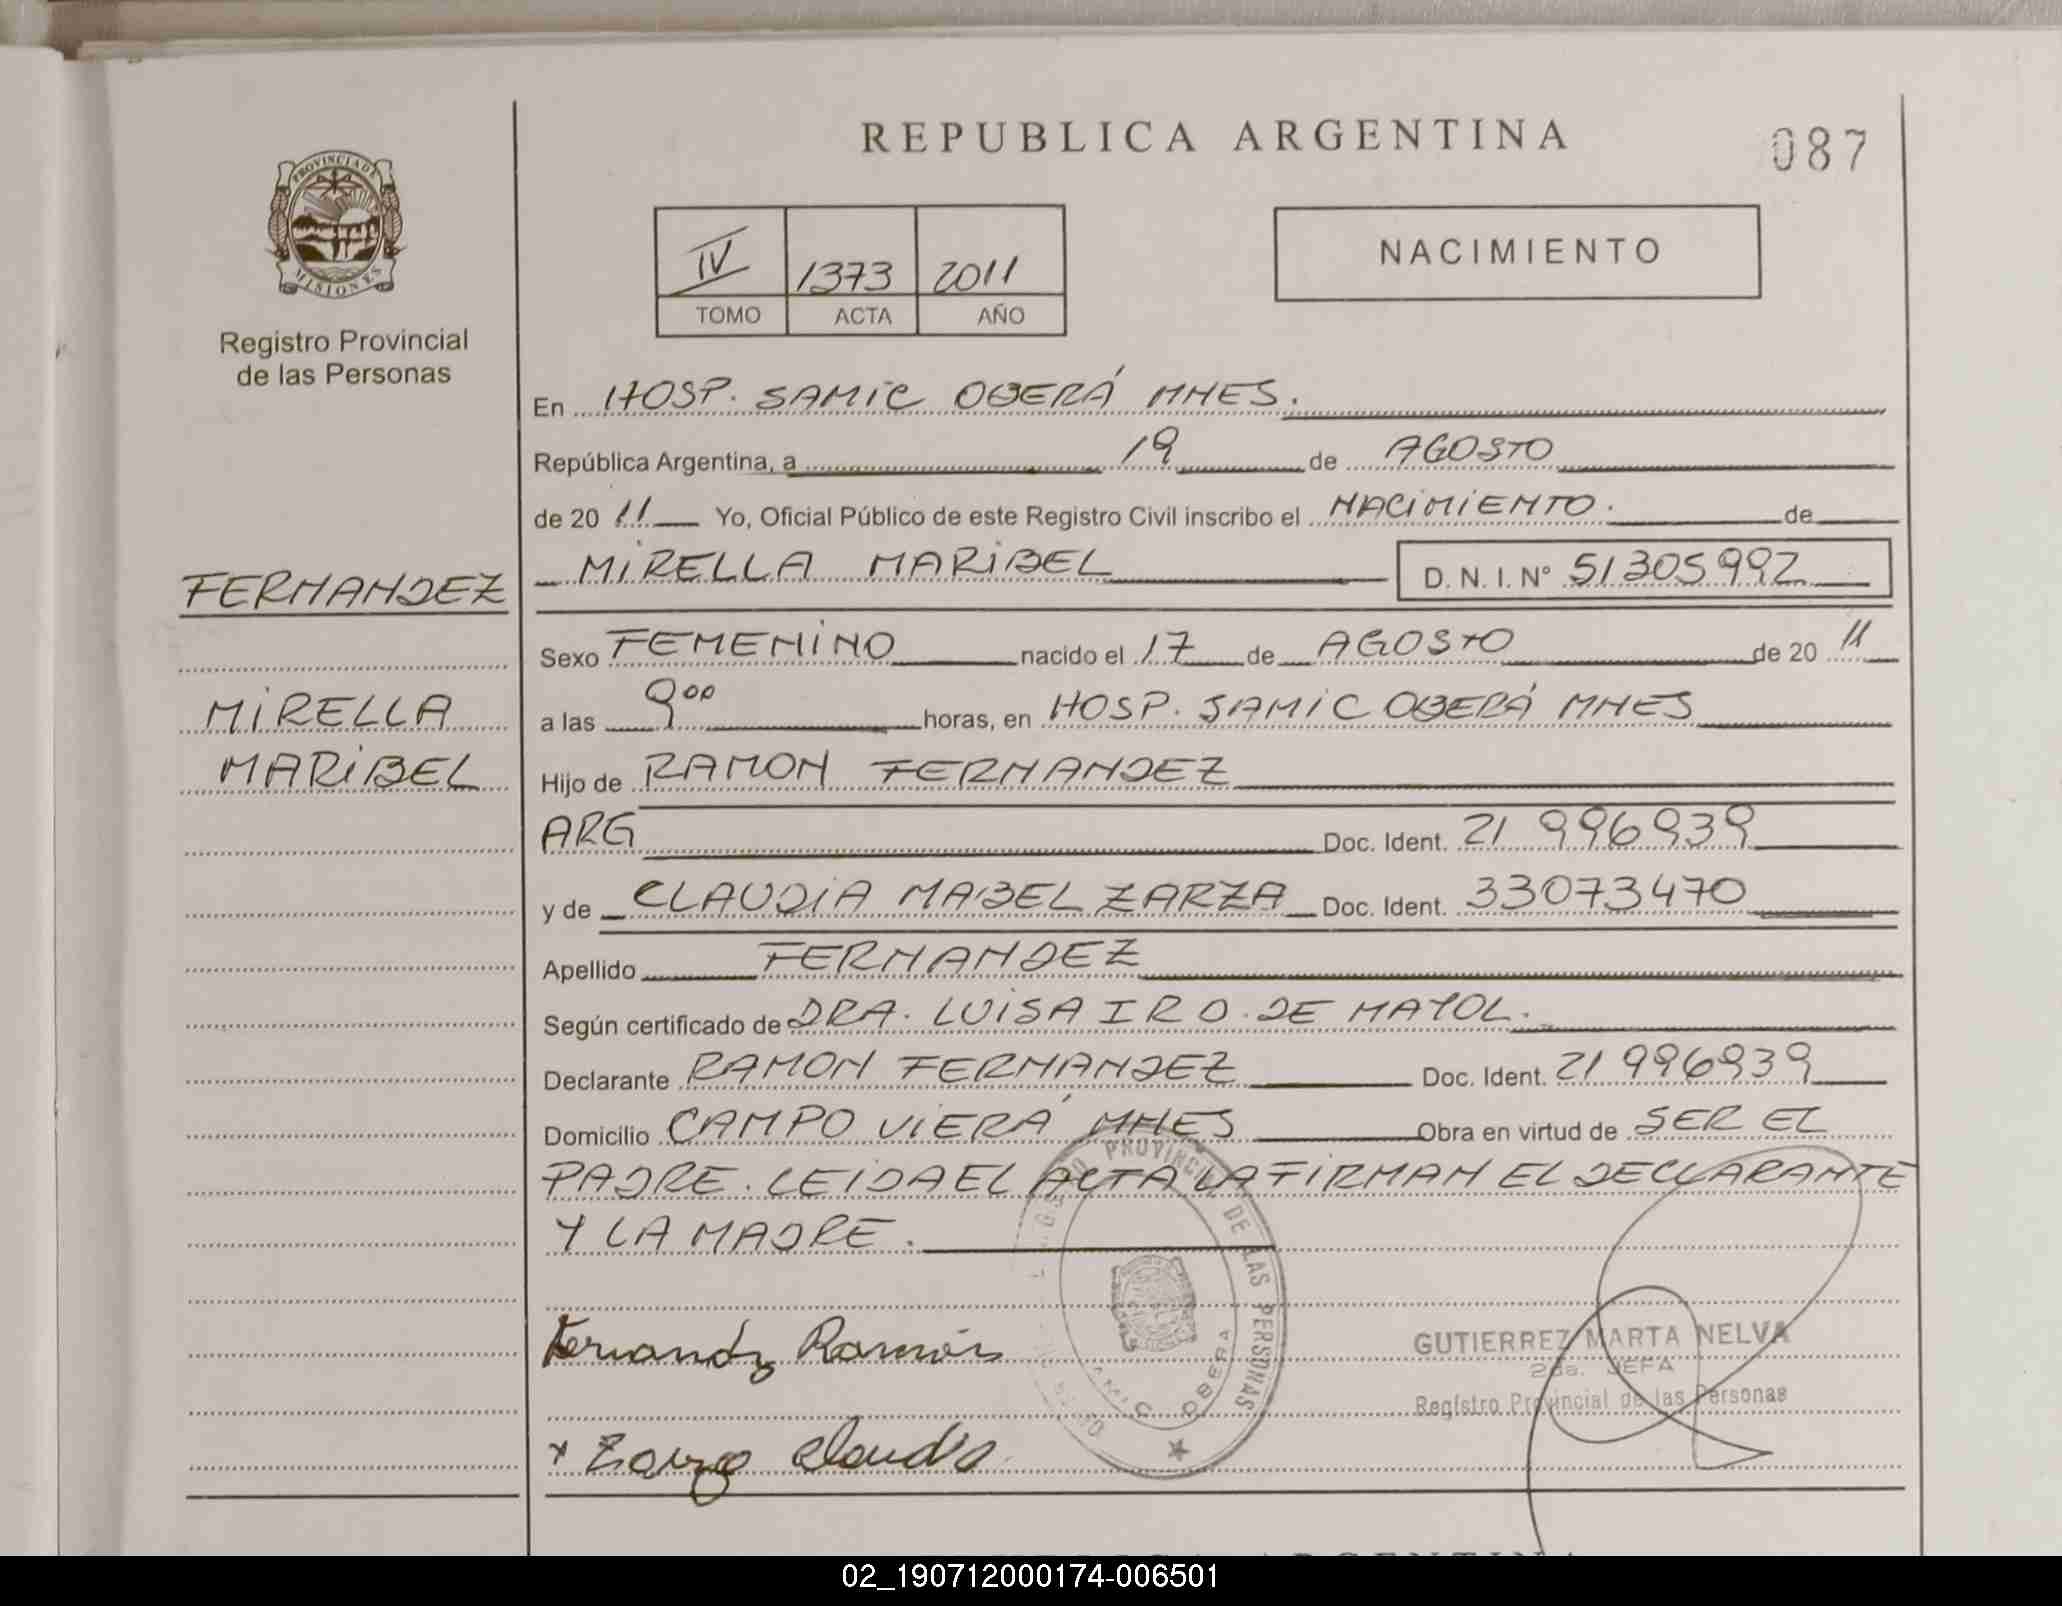 REPUBLICA ARGENTINA
087
PROVINCIA DE
MISIONES
Registro Provincial
de las Personas
IV 1373 2011
TOMO ACTA AÑO
NACIMIENTO
En HOSP. SAMIC OBERÁ MNES.
República Argentina, a 19 de AGOSTO
de 20 11 Yo, Oficial Público de este Registro Civil inscribo el NACIMIENTO. de
MIRELLA MARIBEL D. N. I. N° 51305992
FERNANDEZ
MIRELLA
MARIBEL
Sexo FEMENINO nacido el 17 de AGOSTO de 20 11
a las 9 00 horas, en HOSP. SAMIC OBERÁ MNES
Hijo de RAMON FERNANDEZ
ARG Doc. Ident. 21 996939
y de CLAUDIA MABEL ZARZA Doc. Ident. 33073470
Apellido FERNANDEZ
Según certificado de DRA. LUISA IRO. DE MAYOL.
Declarante RAMON FERNANDEZ Doc. Ident. 21 996939
Domicilio CAMPO VIERA MNES Obra en virtud de SER EL
PADRE. LEIDA EL ACTA LA FIRMAN EL DECLARANTE
Y LA MADRE.
PROVINCIAL DE LAS PERSONAS
OBERA
Ramón
GUTIERREZ MARTA NELVA
2da. JEFA
Registro Provincial de las Personas
x Zarza Claudia
02_190712000174-006501